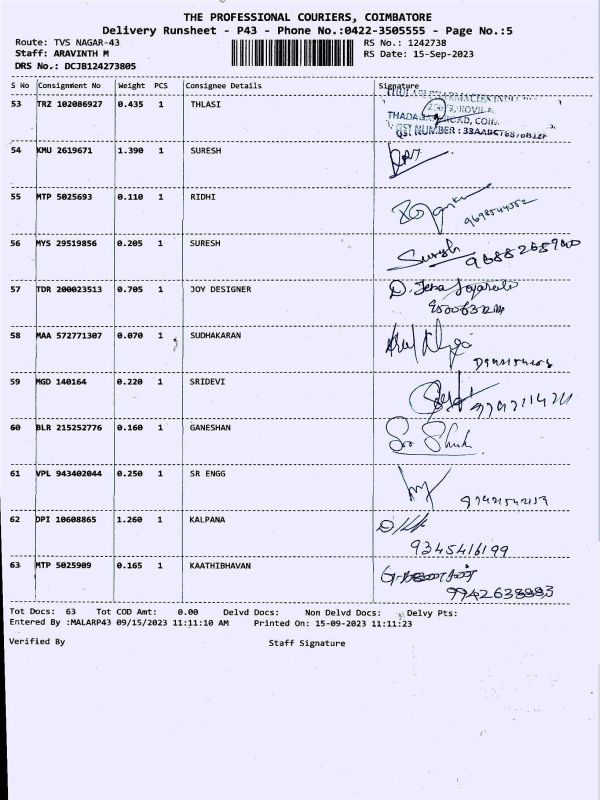 THE PROFESSIONAL COURIERS, COIMBATORE
Delivery Runsheet - P43 - Phone No.:0422-3505555 - Page No.:5
Route: TVS NAGAR-43 RS No.: 1242738
Staff: ARAVINTH M RS Date: 15-Sep-2023
DRS No.: DCJB124273805
S No Consignment No Weight PCS Consignee Details Signature
53 TRZ 102086927 0.435 1 THLASI
GST NUMBER :
54 KMU 2619671 1.390 1 SURESH
55 MTP 5025693 0.110 1 RIDHI
56 MYS 29519856 0.205 1 SURESH Suresh
57 TDR 200023513 0.705 1 JOY DESIGNER
58 MAA 572771307 0.070 1 SUDHAKARAN
59 MGD 140164 0.220 1 SRIDEVI
60 BLR 215252776 0.160 1 GANESHAN
61 VPL 943402044 0.250 1 SR ENGG
62 DPI 10608865 1.260 1 KALPANA
9345416199
63 MTP 5025909 0.165 1 KAATHIBHAVAN
Tot Docs: 63 Tot COD Amt: 0.00 Delvd Docs: Non Delvd Docs: Delvy Pts:
Entered By :MALARP43 09/15/2023 11:11:10 AM Printed On: 15-09-2023 11:11:23
Verified By Staff Signature